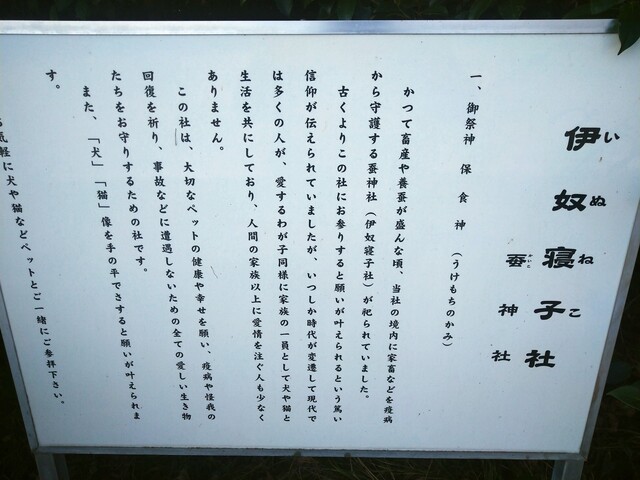 伊奴寝子社
いぬねこ
蚕神社
かいこ
一、御祭神　保食神　（うけもちのかみ）
かつて畜産や養蚕が盛んな頃、当社の境内に家畜などを疫病
から守護する蚕神社（伊奴寝子社）が祀られていました。
古くよりこの社にお参りすると願いが叶えられるという篤い
信仰が伝えられていましたが、いつしか時代が変遷して現代で
は多くの人が、愛するわが子同様に家族の一員として犬や猫と
生活を共にしており、人間の家族以上に愛情を注ぐ人も少なく
ありません。
この社は、大切なペットの健康や幸せを願い、疫病や怪我の
回復を祈り、事故などに遭遇しないための全ての愛しい生き物
たちをお守りするための社です。
また、「犬」「猫」像を手の平でさすると願いが叶えられま
す。
気軽に犬や猫などペットとご一緒にご参拝下さい。